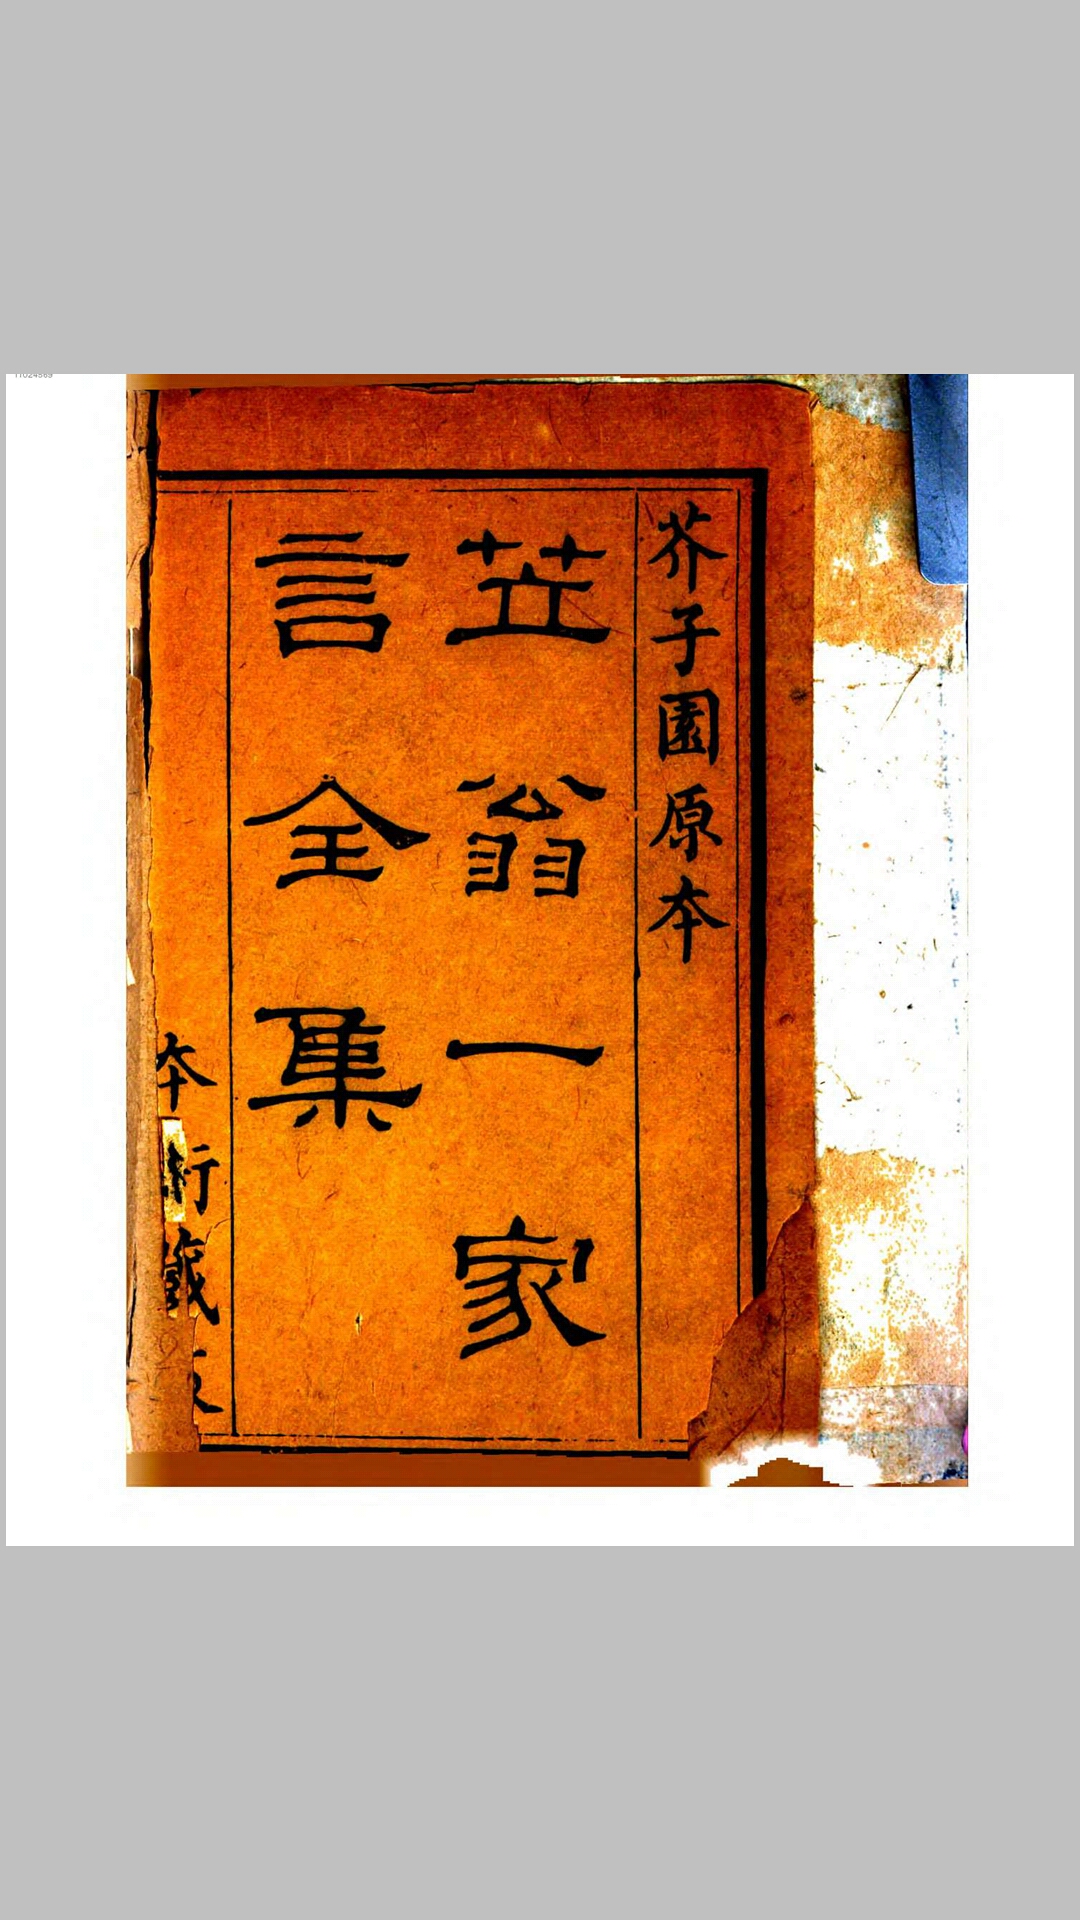 芥子園原本
笠翁一家
言全集
本衙藏